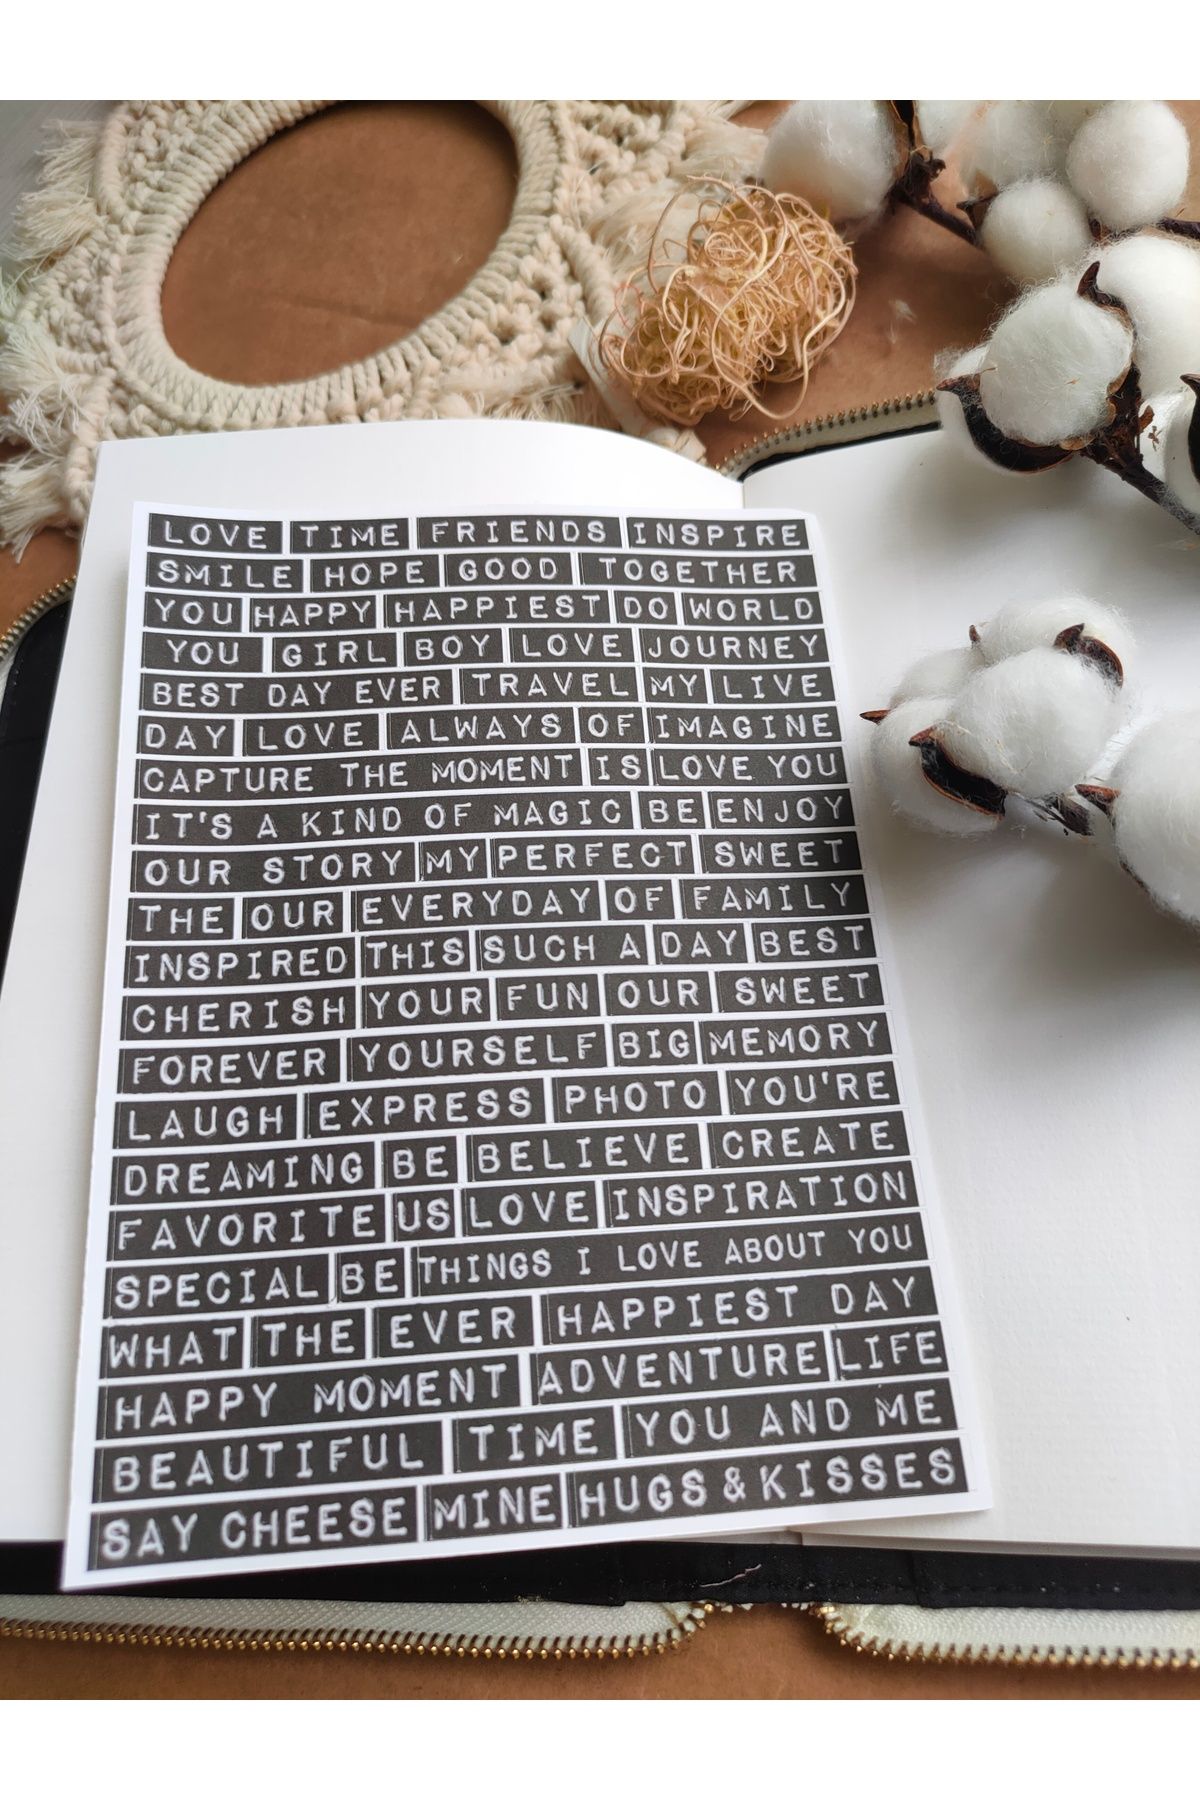 LOVE TIME FRIENDS INSPIRE
SMILE HOPE GOOD TOGETHER
YOU HAPPY HAPPIEST DO WORLD
YOU GIRL BOY LOVE JOURNEY
BEST DAY EVER TRAVEL MY LIVE
DAY LOVE ALWAYS OF IMAGINE
CAPTURE THE MOMENT IS LOVE YOU
IT'S A KIND OF MAGIC BE ENJOY
OUR STORY MY PERFECT SWEET
THE OUR EVERYDAY OF FAMILY
INSPIRED THIS SUCH A DAY BEST
CHERISH YOUR FUN OUR SWEET
FOREVER YOURSELF BIG MEMORY
LAUGH EXPRESS PHOTO YOU'RE
DREAMING BE BELIEVE CREATE
FAVORITE US LOVE INSPIRATION
SPECIAL BE THINGS I LOVE ABOUT YOU
WHAT THE EVER HAPPIEST DAY
HAPPY MOMENT ADVENTURE LIFE
BEAUTIFUL TIME YOU AND ME
SAY CHEESE MINE HUGS & KISSES